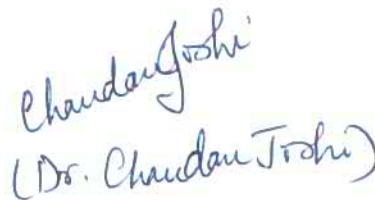 Chandan Joshi
(Dr. Chandan Joshi)